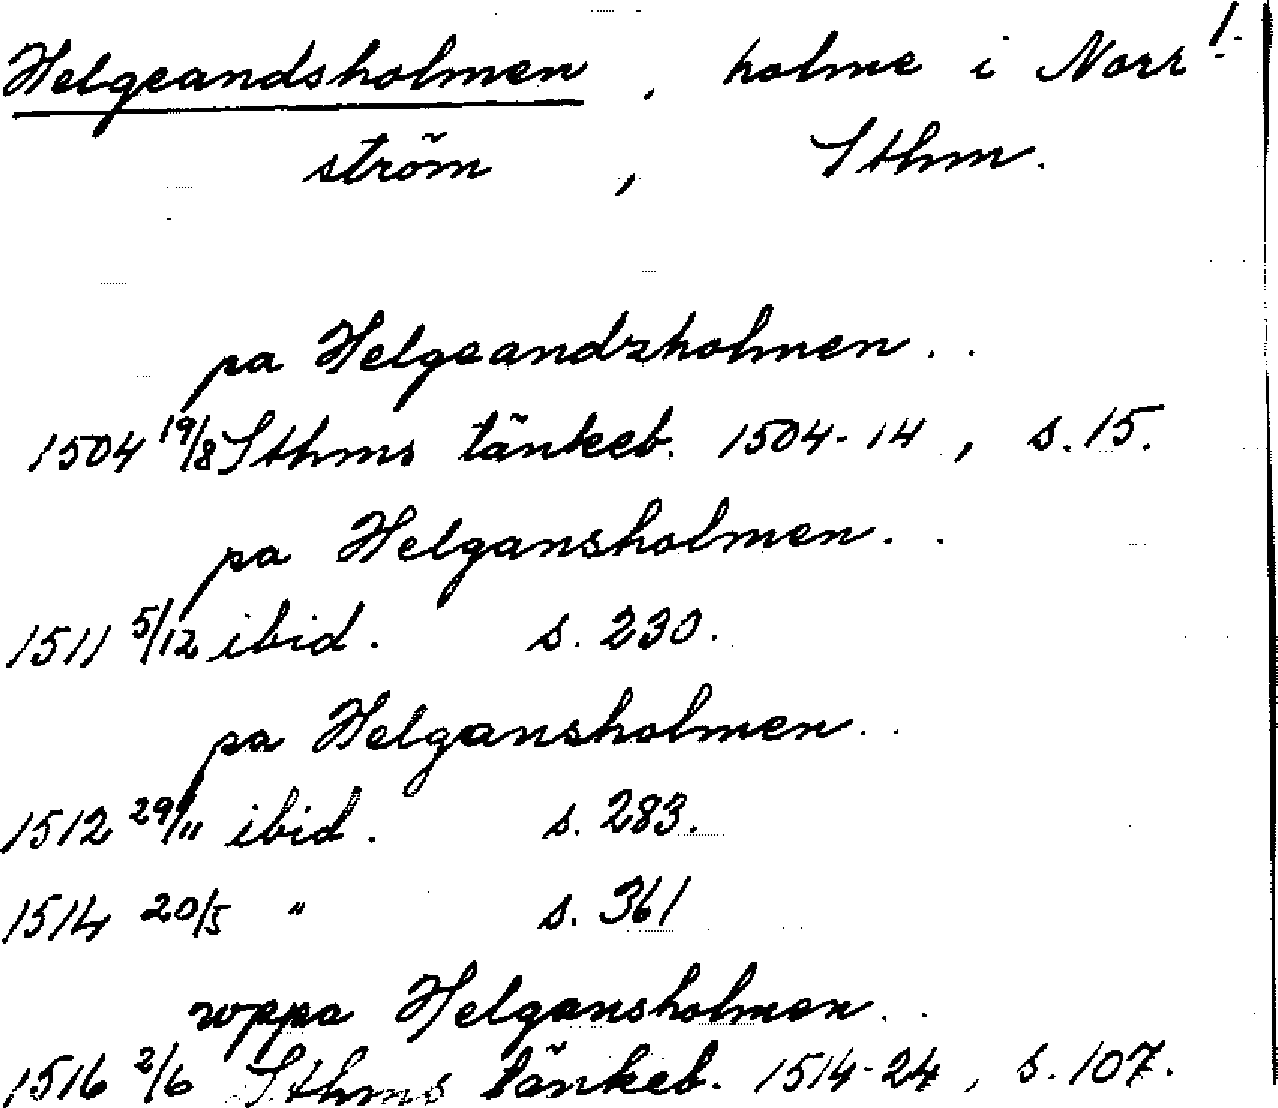 Helgeandsholmen, holme i Norr 1.
ström, Sthm.
pa Helgeandzholmen..
1504 19/8 Sthms tänkeb. 1504-14, s.15.
pa Helgansholmen..
1511 5/12 ibid. s. 230.
pa Helgansholmen..
1512 29/11 ibid. s. 283.
1514 20/5 " s. 361
wppa Helgansholmen..
1516 2/6 Sthms tänkeb. 1514-24, s. 107.